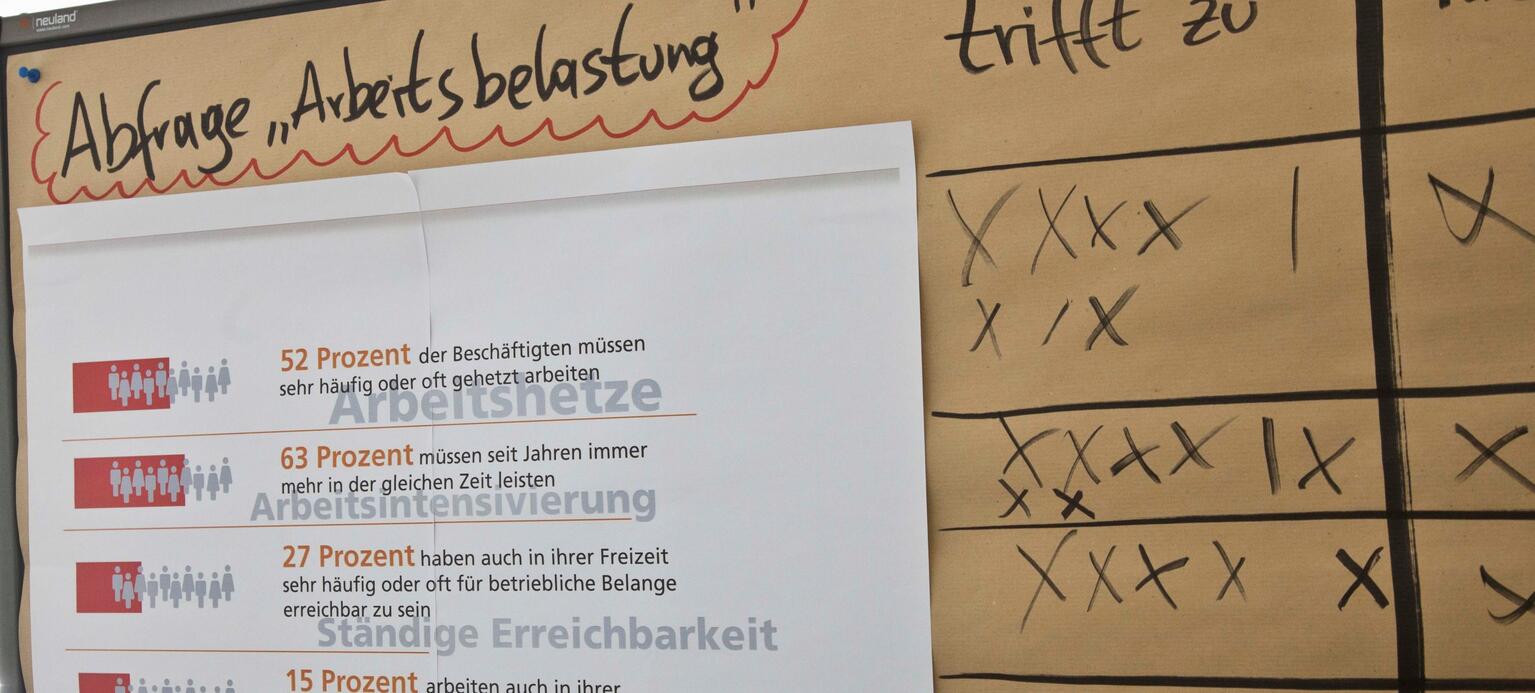 neuland
Abfrage „Arbeitsbelastung"
trifft zu
52 Prozent der Beschäftigten müssen
sehr häufig oder oft gehetzt arbeiten
Arbeitshetze
63 Prozent müssen seit Jahren immer
mehr in der gleichen Zeit leisten
Arbeitsintensivierung
27 Prozent haben auch in ihrer Freizeit
sehr häufig oder oft für betriebliche Belange
erreichbar zu sein
Ständige Erreichbarkeit
15 Prozent arbeiten auch in ihrer